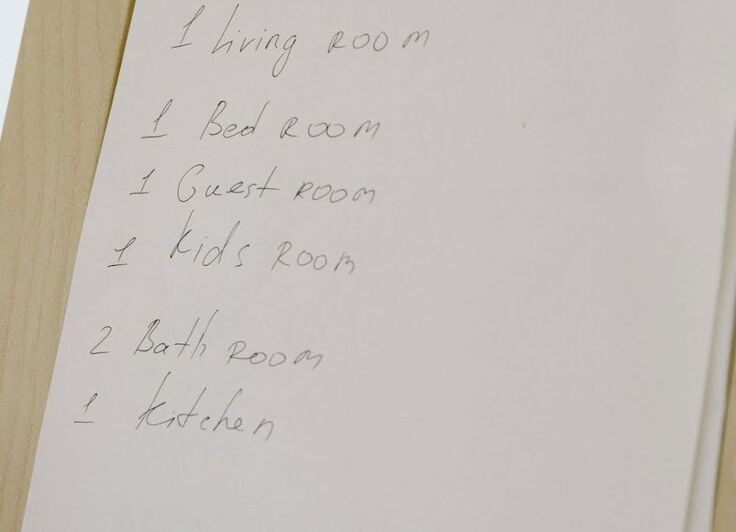 1 Living ROOM
1 Bed ROOM
1 Guest ROOM
1 Kids ROOM
2 Bath ROOM
1 Kitchen